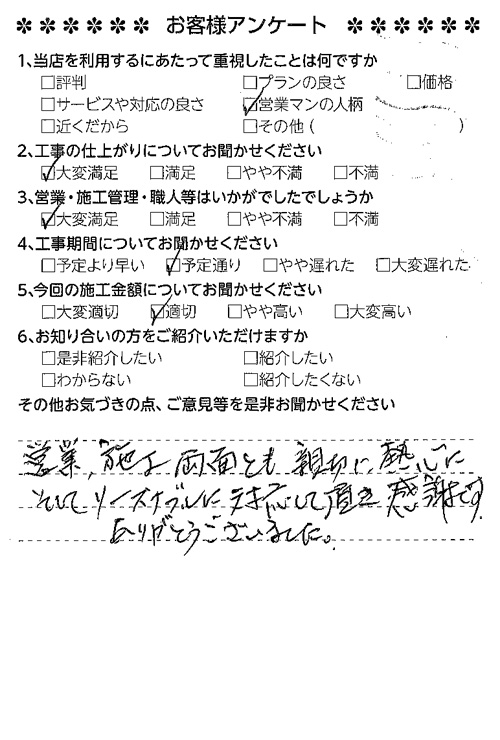 ✽✽✽✽✽✽ お客様アンケート ✽✽✽✽✽✽
1、当店を利用するにあたって重視したことは何ですか
□評判 □プランの良さ □価格
□サービスや対応の良さ ☑営業マンの人柄
□近くだから □その他( )
2、工事の仕上がりについてお聞かせください
☑大変満足 □満足 □やや不満 □不満
3、営業・施工管理・職人等はいかがでしたでしょうか
☑大変満足 □満足 □やや不満 □不満
4、工事期間についてお聞かせください
□予定より早い ☑予定通り □やや遅れた □大変遅れた
5、今回の施工金額についてお聞かせください
□大変適切 ☑適切 □やや高い □大変高い
6、お知り合いの方をご紹介いただけますか
□是非紹介したい □紹介したい
□わからない □紹介したくない
その他お気づきの点、ご意見等を是非お聞かせください
営業、施工両面とも親切に、熱心に
そしてリーズナブルに対応して頂き感謝です
ありがとうございました。